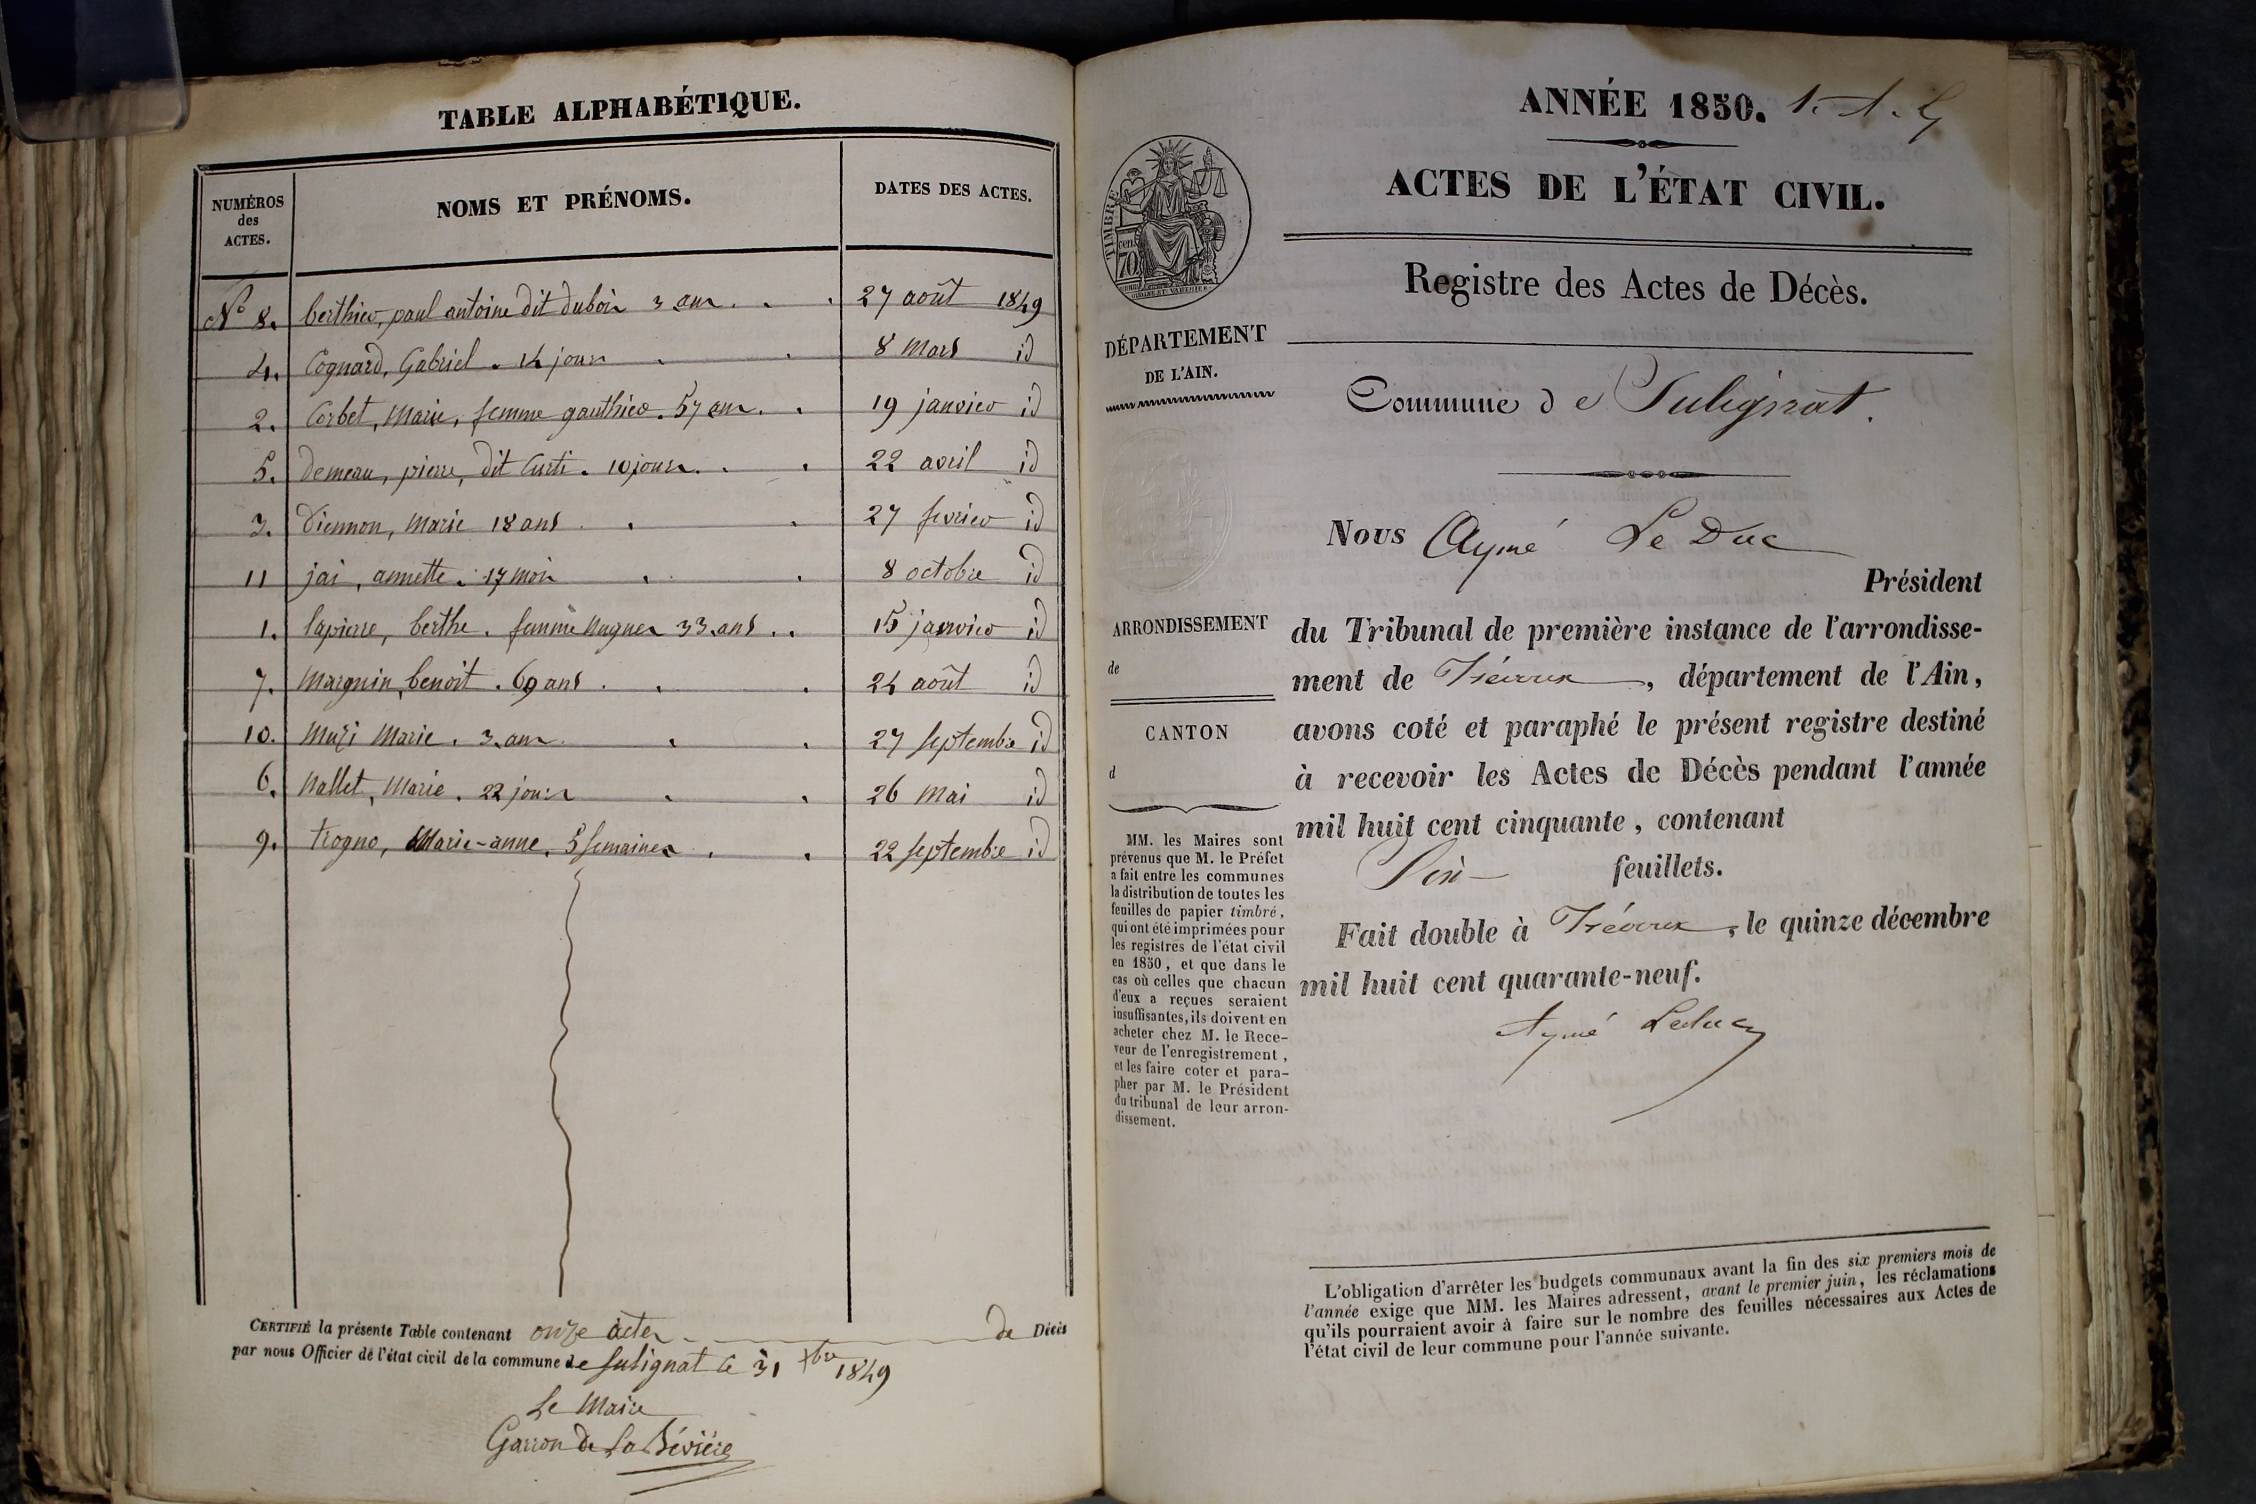 TABLE ALPHABÉTIQUE.
NUMÉROS
des
ACTES.
NOMS ET PRÉNOMS.
DATES DES ACTES.
No 8. berthier, paul antoine dit dubois 3 ans . . . 27 août 1849
4. Cognard, Gabriel . 14 jours . . 8 Mars id
2. Corbet, Marie, femme gauthier . 57 ans . . 19 janvier id
5. demeau, pierre, dit Curti . 10 jours . . . 22 avril id
3. diennon, Marie 18 ans . . . 27 fevrier id
11 jai, annette . 17 mois . . 8 octobre id
1. lapierre, berthe . femme Nugues 33 ans . . 15 janvier id
7. Marguin, benoit . 69 ans . . . 24 août id
10. Muzi Marie . 3 ans . . 27 septembre id
6. Nallet, Marie . 22 jours . . 26 Mai id
9. trogno, Marie-anne . 5 semaines . . 22 septembre id
CERTIFIÉ la présente Table contenant onze actes de Décès
par nous Officier de l'état civil de la commune de sulignat le 31 xbre 1849
Le Maire
Garron de La Bévière
ANNÉE 1850.
ACTES DE L'ÉTAT CIVIL.
TIMBRE
cen.
70
Registre des Actes de Décès.
DÉPARTEMENT
DE L'AIN.
Commune de Sulignat.
Nous Aymé Le Duc
Président
ARRONDISSEMENT
de
CANTON
d
du Tribunal de première instance de l'arrondisse-
ment de Trévoux, département de l'Ain,
avons coté et paraphé le présent registre destiné
à recevoir les Actes de Décès pendant l'année
mil huit cent cinquante, contenant
Six feuillets.
Fait double à Trévoux, le quinze décembre
mil huit cent quarante-neuf.
Aymé Leduc
MM. les Maires sont
prévenus que M. le Préfet
a fait entre les communes
la distribution de toutes les
feuilles de papier timbré,
qui ont été imprimées pour
les registres de l'état civil
en 1850, et que dans le
cas où celles que chacun
d'eux a reçues seraient
insuffisantes, ils doivent en
acheter chez M. le Rece-
veur de l'enregistrement,
et les faire coter et para-
pher par M. le Président
du tribunal de leur arron-
dissement.
L'obligation d'arrêter les budgets communaux avant la fin des six premiers mois de
l'année exige que MM. les Maires adressent, avant le premier juin, les réclamations
qu'ils pourraient avoir à faire sur le nombre des feuilles nécessaires aux Actes de
l'état civil de leur commune pour l'année suivante.